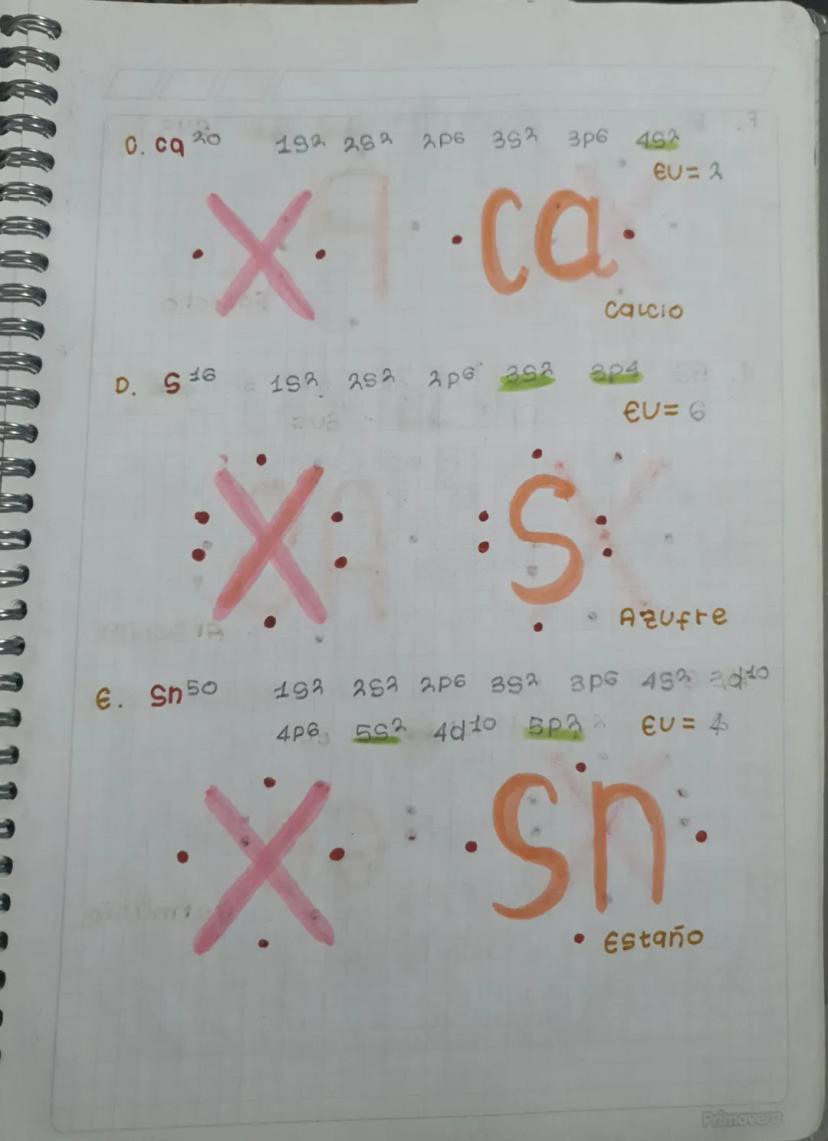 C. Ca²⁰ 1s² 2s² 2p⁶ 3s² 3p⁶ 4s²
EV = 2
X Ca
Calcio
D. S¹⁶ 1s² 2s² 2p⁶ 3s² 3p⁴
EV = 6
X S
Azufre
E. Sn⁵⁰ 1s² 2s² 2p⁶ 3s² 3p⁶ 4s² 3d¹⁰
4p⁶ 5s² 4d¹⁰ 5p² EV = 4
X Sn
Estaño
Primavera